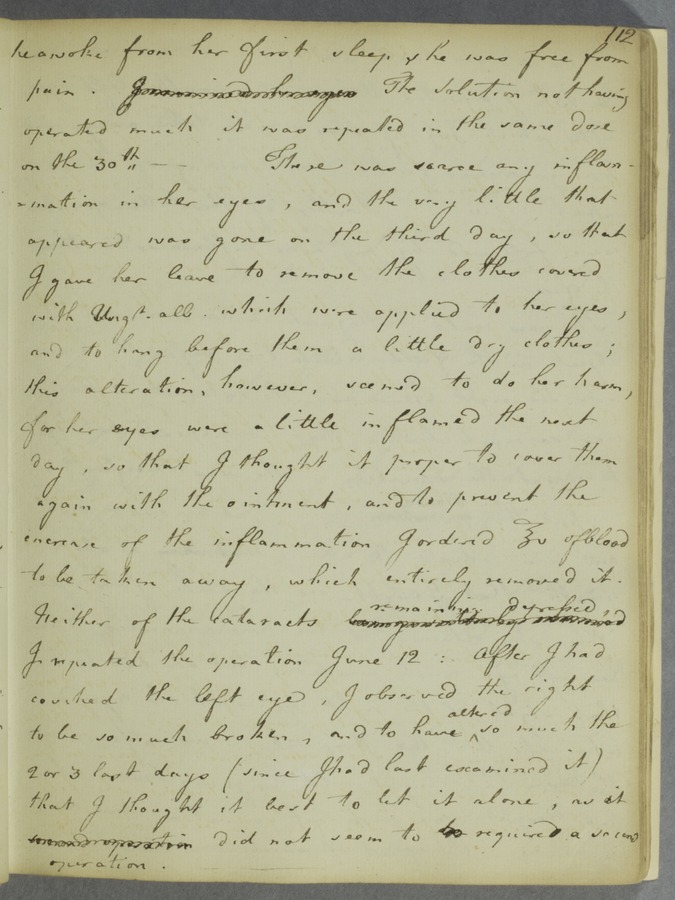 112
heawoke from her first sleep she was free from
pain. The Solution not having
operated much it was repeated in the same dose
on the 30th — — There was scarce any inflam-
-mation in her eyes, and the very little that
appeared was gone on the third day, so that
I gave her leave to remove the clothes covered
with Ungt. alb. which were applied to her eyes,
and to hang before them a little dry clothes;
this alteration, however, seemed to do her harm,
for her eyes were a little inflamed the next
day, so that I thought it proper to cover them
again with the ointment, and to prevent the
increase of the inflammation I ordered ℥v of blood
to be taken away, which entirely removed it.
remaining depressed
Neither of the cataracts
I repeated the operation June 12: After I had
couched the left eye, I observed the right
altered
to be so much broken, and to have ^ so much the
2 or 3 last days (since I had last examined it)
that I thought it best to let it alone, as it
did not seem to required a second
operation.